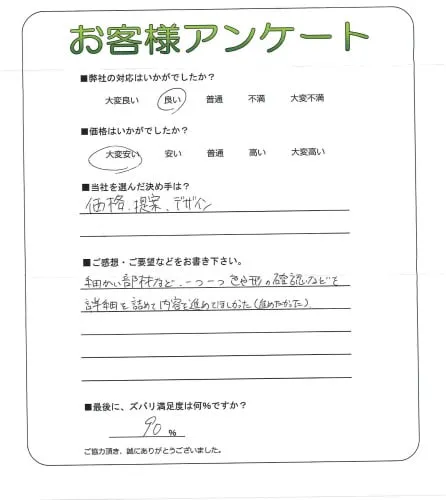 お客様アンケート
■弊社の対応はいかがでしたか？
大変良い 良い 普通 不満 大変不満
■価格はいかがでしたか？
大変安い 安い 普通 高い 大変高い
■当社を選んだ決め手は？
価格、提案、デザイン
■ご感想・ご要望などをお書き下さい。
細かい部材など、一つ一つ色や形の確認などを
詳細を詰めて内容を進めてほしかった（進めたかった）
■最後に、ズバリ満足度は何%ですか？
90 %
ご協力頂き、誠にありがとうございました。